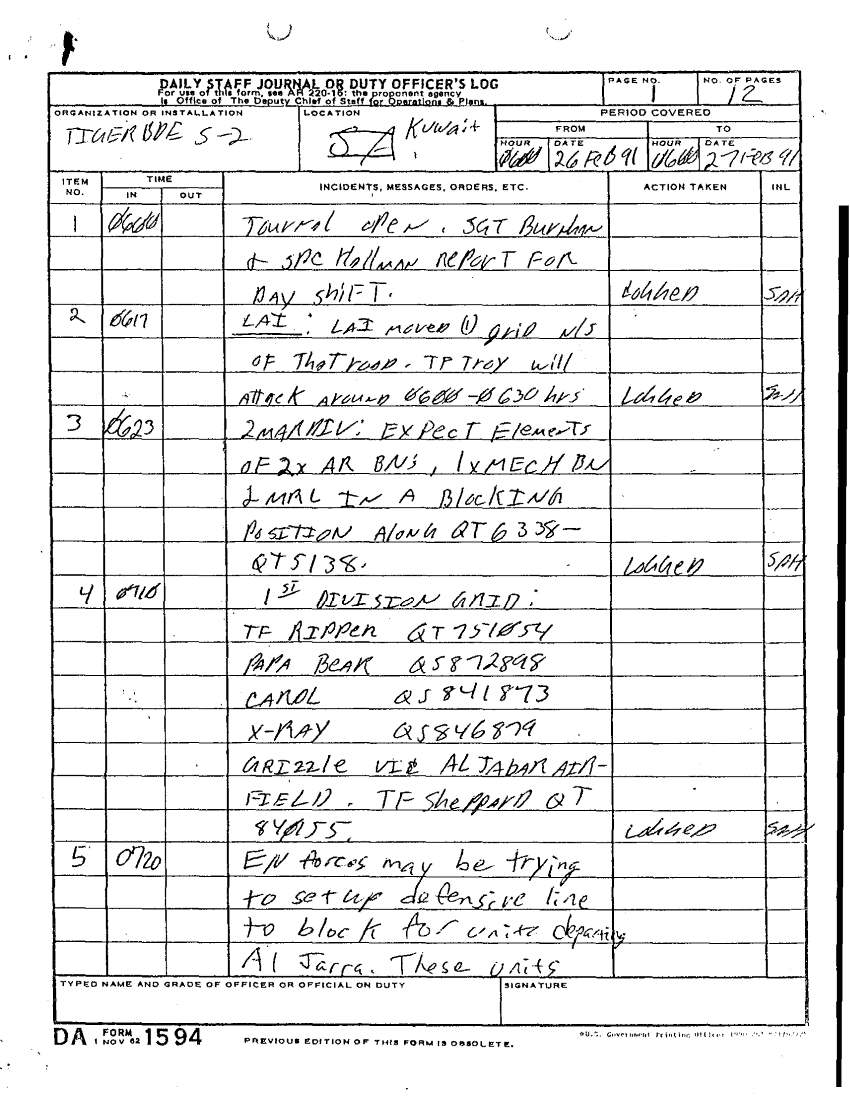 DAILY STAFF JOURNAL OR DUTY OFFICER'S LOG
For use of this form, see AR 220-15; the proponent agency
is Office of The Deputy Chief of Staff for Operations & Plans.
PAGE NO.
1
NO. OF PAGES
12
ORGANIZATION OR INSTALLATION
TIGER BDE S-2
LOCATION
SA Kuwait
PERIOD COVERED
FROM
TO
HOUR
0600
DATE
26 Feb 91
HOUR
0600
DATE
27 FEB 91
ITEM NO.
TIME
IN
OUT
INCIDENTS, MESSAGES, ORDERS, ETC.
ACTION TAKEN
INL
1 0600 Journal open. SGT
& SPC Hallman REPORT FOR
DAY SHIFT. LOGGED SAH
2 0617 LAI: LAI moved (1) grid N/S
OF TF Troy will
Attack around 0600-0630 hrs LOGGED
3 0623 2MARDIV: EXPECT Elements
OF 2x AR BNs, 1xMECH BN
1 MRL IN A BlockING
POSITION AlonG QT6338-
QT5138. LOGGED SAH
4 0710 1ST DIVISION GRID:
TF RIPPER QT751054
PAPA BEAR QS872898
CAROL QS841873
X-RAY QS846879
GRIZZLE VIC AL JABAR AIR-
FIELD. TF SHEPPARD QT
84055. LOGGED SAH
5 0720 EN forces may be trying
to set up defensive line
to block for units departing
Al Jarra. These units
TYPED NAME AND GRADE OF OFFICER OR OFFICIAL ON DUTY
SIGNATURE
DA FORM 1594
1 NOV 62
PREVIOUS EDITION OF THIS FORM IS OBSOLETE.
U.S. Government Printing Office: